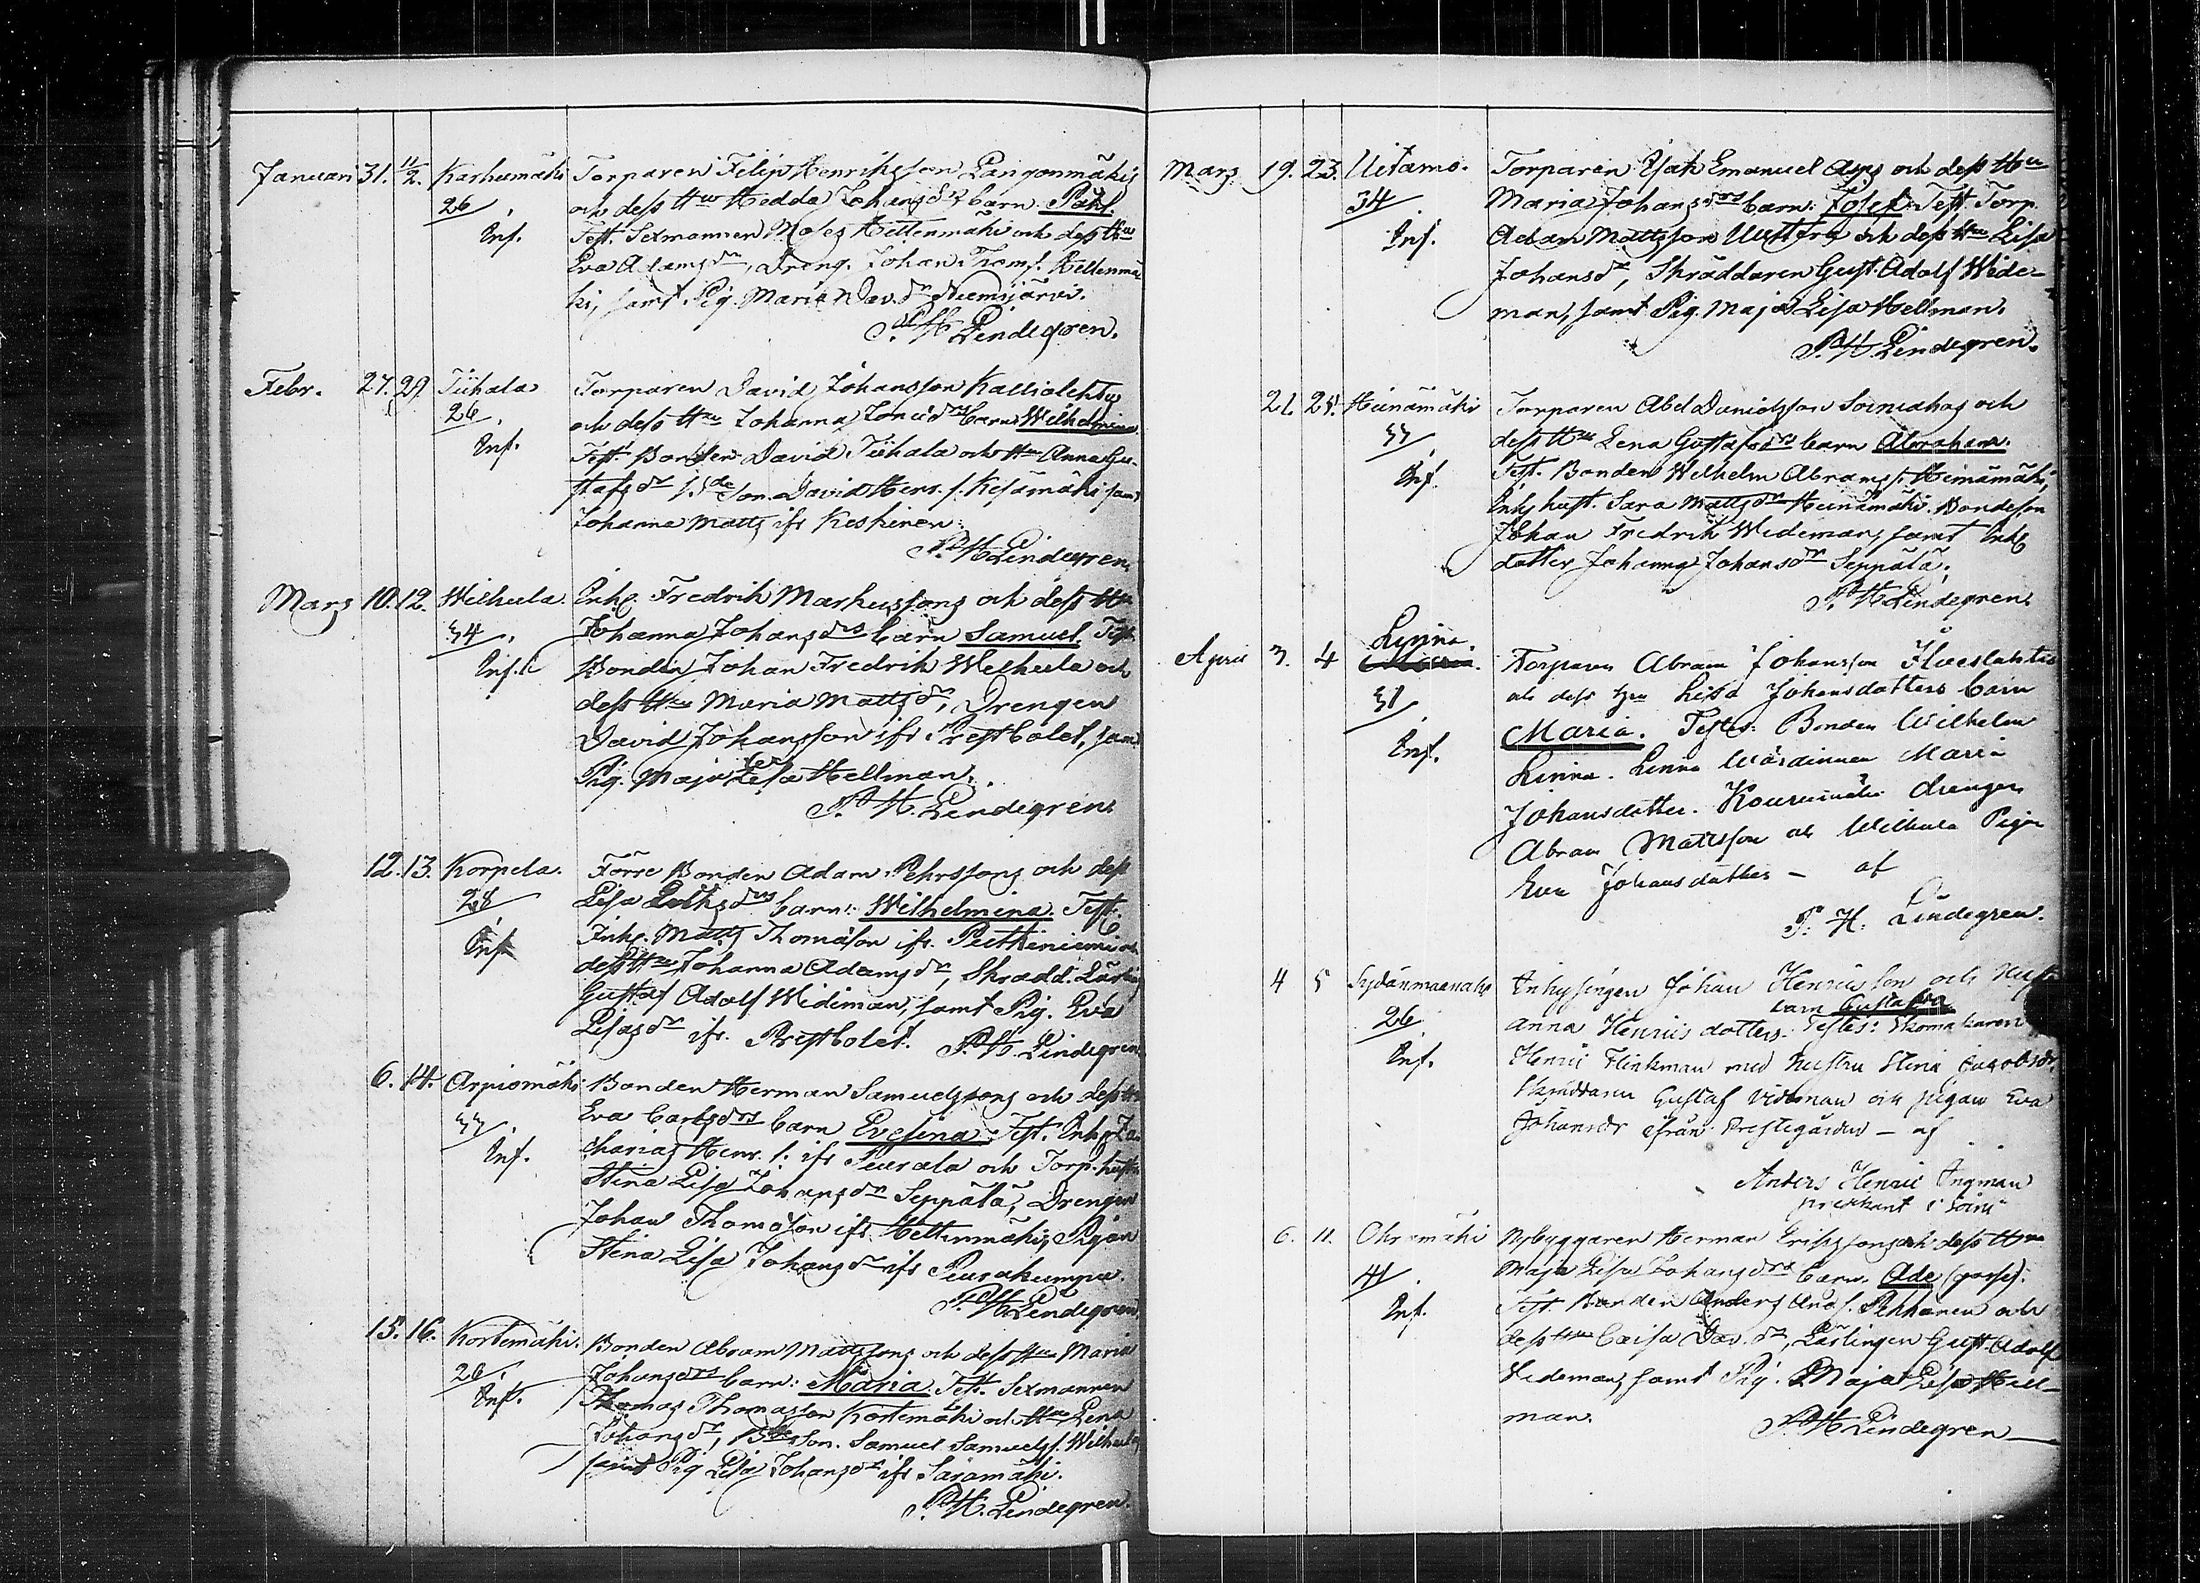 Januari 31. 11/2. Karhumäki Torparen Filip Henriksson Langonmäkis
26 och dess Hu Hedda Johansdrs barn. Pål.
Inf. Test. Sexmannen Moses Hettenmäki och dess Hu
Eva Adamsdr, Dreng. Johan Thoms. Kellenmä
ki, samt Pig. Maria Dav.dr Niemisjärvi.
P. H. Lindegren.
Febr. 27. 29 Tiihala Torparen David Johansson Kalliolehtos
26. och dess Hu Johanna Jonædrs barn Wilhelmina
Inf. Test. Bonden David Tiihala och Hu Anna Gu-
stafsdr, Bdeson. David Henr. s. Kesämäki samt
Johanna Matts ifr Keskinen.
P. H. Lindegren.
Mars 10. 12. Wilhula Inhs. Fredrik Markussons och dess Hu
34. Johanna Johansdrs barn Samuel. Test.
Inf. Bonden Johan Fredrik Wilhula och
dess Hu Maria Mattsdr, Drengen
David Johansson ifr Prestbolet, samt
Pig. Maja Lisa Hellman.
P. H. Lindegren.
12. 13. Korpela. Förre Bonden Adam Pehrssons och dess
28 Lisa drs barn: Wilhelmina. Test.
Inf. Inhs. Matts Thomasson ifr. och
dess Hu Johanna Adamsdr, Skrädd. Lärling
Gustaf Adolf Wideman, samt Pig. Eva
Lisasdr ifr. Prestbolet. P. H. Lindegren
6. 14. Arpiomäki Bonden Herman Samuelssons och dess Hu
33. Eva Carlsdrs barn Evelina. Test. Inhs Za
Inf. charias Henr. s. ifr Peurala och Torp. hustr
Stina Lisa Johansdr Seppälä, Drengen
Johan Thomasson ifr Hettenmäki, Pigan
Stina Lisa Johansdr ifr Peurakumpu.
P. H. Lindegren.
15. 16. Kortemäki. Bonden Abram Mattssons och dess Hu Maria
26. Johansdrs barn: Maria. Test. Sexmannen
Inf. Thomas Thomasson Kortemäki och Hu Lena
Johansdr, Bdeson. Samuel Samuelss. Wilhula
samt Pig Lisa Johansdr ifr Saramäki.
P. H. Lindegren.
Mars 19. 23. Uitamo. Torparen Isak Emanuel Asps och dess Hu
34 Maria Johansdrs barn: Josef. Test. Torp.
Inf. Adam Mattsson och dess Hu Lisa
Johansdr, Skräddaren Gust. Adolf Wide-
man, samt Pig. Maja Lisa Hellman.
P. H. Lindegren.
21. 25. Heinämäki Torparen Abel Danielsson Soiniahos och
33 dess Hu Lena Gustafsdrs barn Abraham.
Inf. Test. Bonden Wilhelm Abramss. Heinämäki,
Inhs hust. Sara Mattsdr Heinämäki. Bondeson
Johan Fredrik Wideman, samt Inhs
dotter Johanna Johansdr Seppälä.
P. H. Lindegren.
April 3. 4 Linna. Torparen Abram Johansson
31 och dess Hu Lisa Johansdotters barn
Inf. Maria. Testes: Bonden Wilhelm
Linna. Linna Wärdinnan Maria
Johansdotter. drengen
Abram Mattsson och Wilhula Pigan
Eva Johansdotter – af
P. H. Lindegren.
4 5 Sydänmaanaho Inhysingen Johan Henricsson och Hustr
barn Gustafva
26 Anna Henricsdotters. Testes: Skomakaren
Inf. Henric Flinkman med hustru Stina Jacobsdr.
Skräddaren Gustaf Vidman och pigan Eva
Johansdr ifrån Prestegården – af
Anders Henric Ingman
predikant i Soini
6. 11. Ohramäki Nybyggaren Herman Erikssons och dess Hu
41. Maja Lisa Johansdrs barn. Ade (gosse).
Inf. Test. Bonden Anders And. s. Pekkanen och
dess Hu Caisa Dav. dr, Lärlingen Gust. Adolf
Wideman, samt Pig. Maja Lisa Hell-
man.
P. H. Lindegren